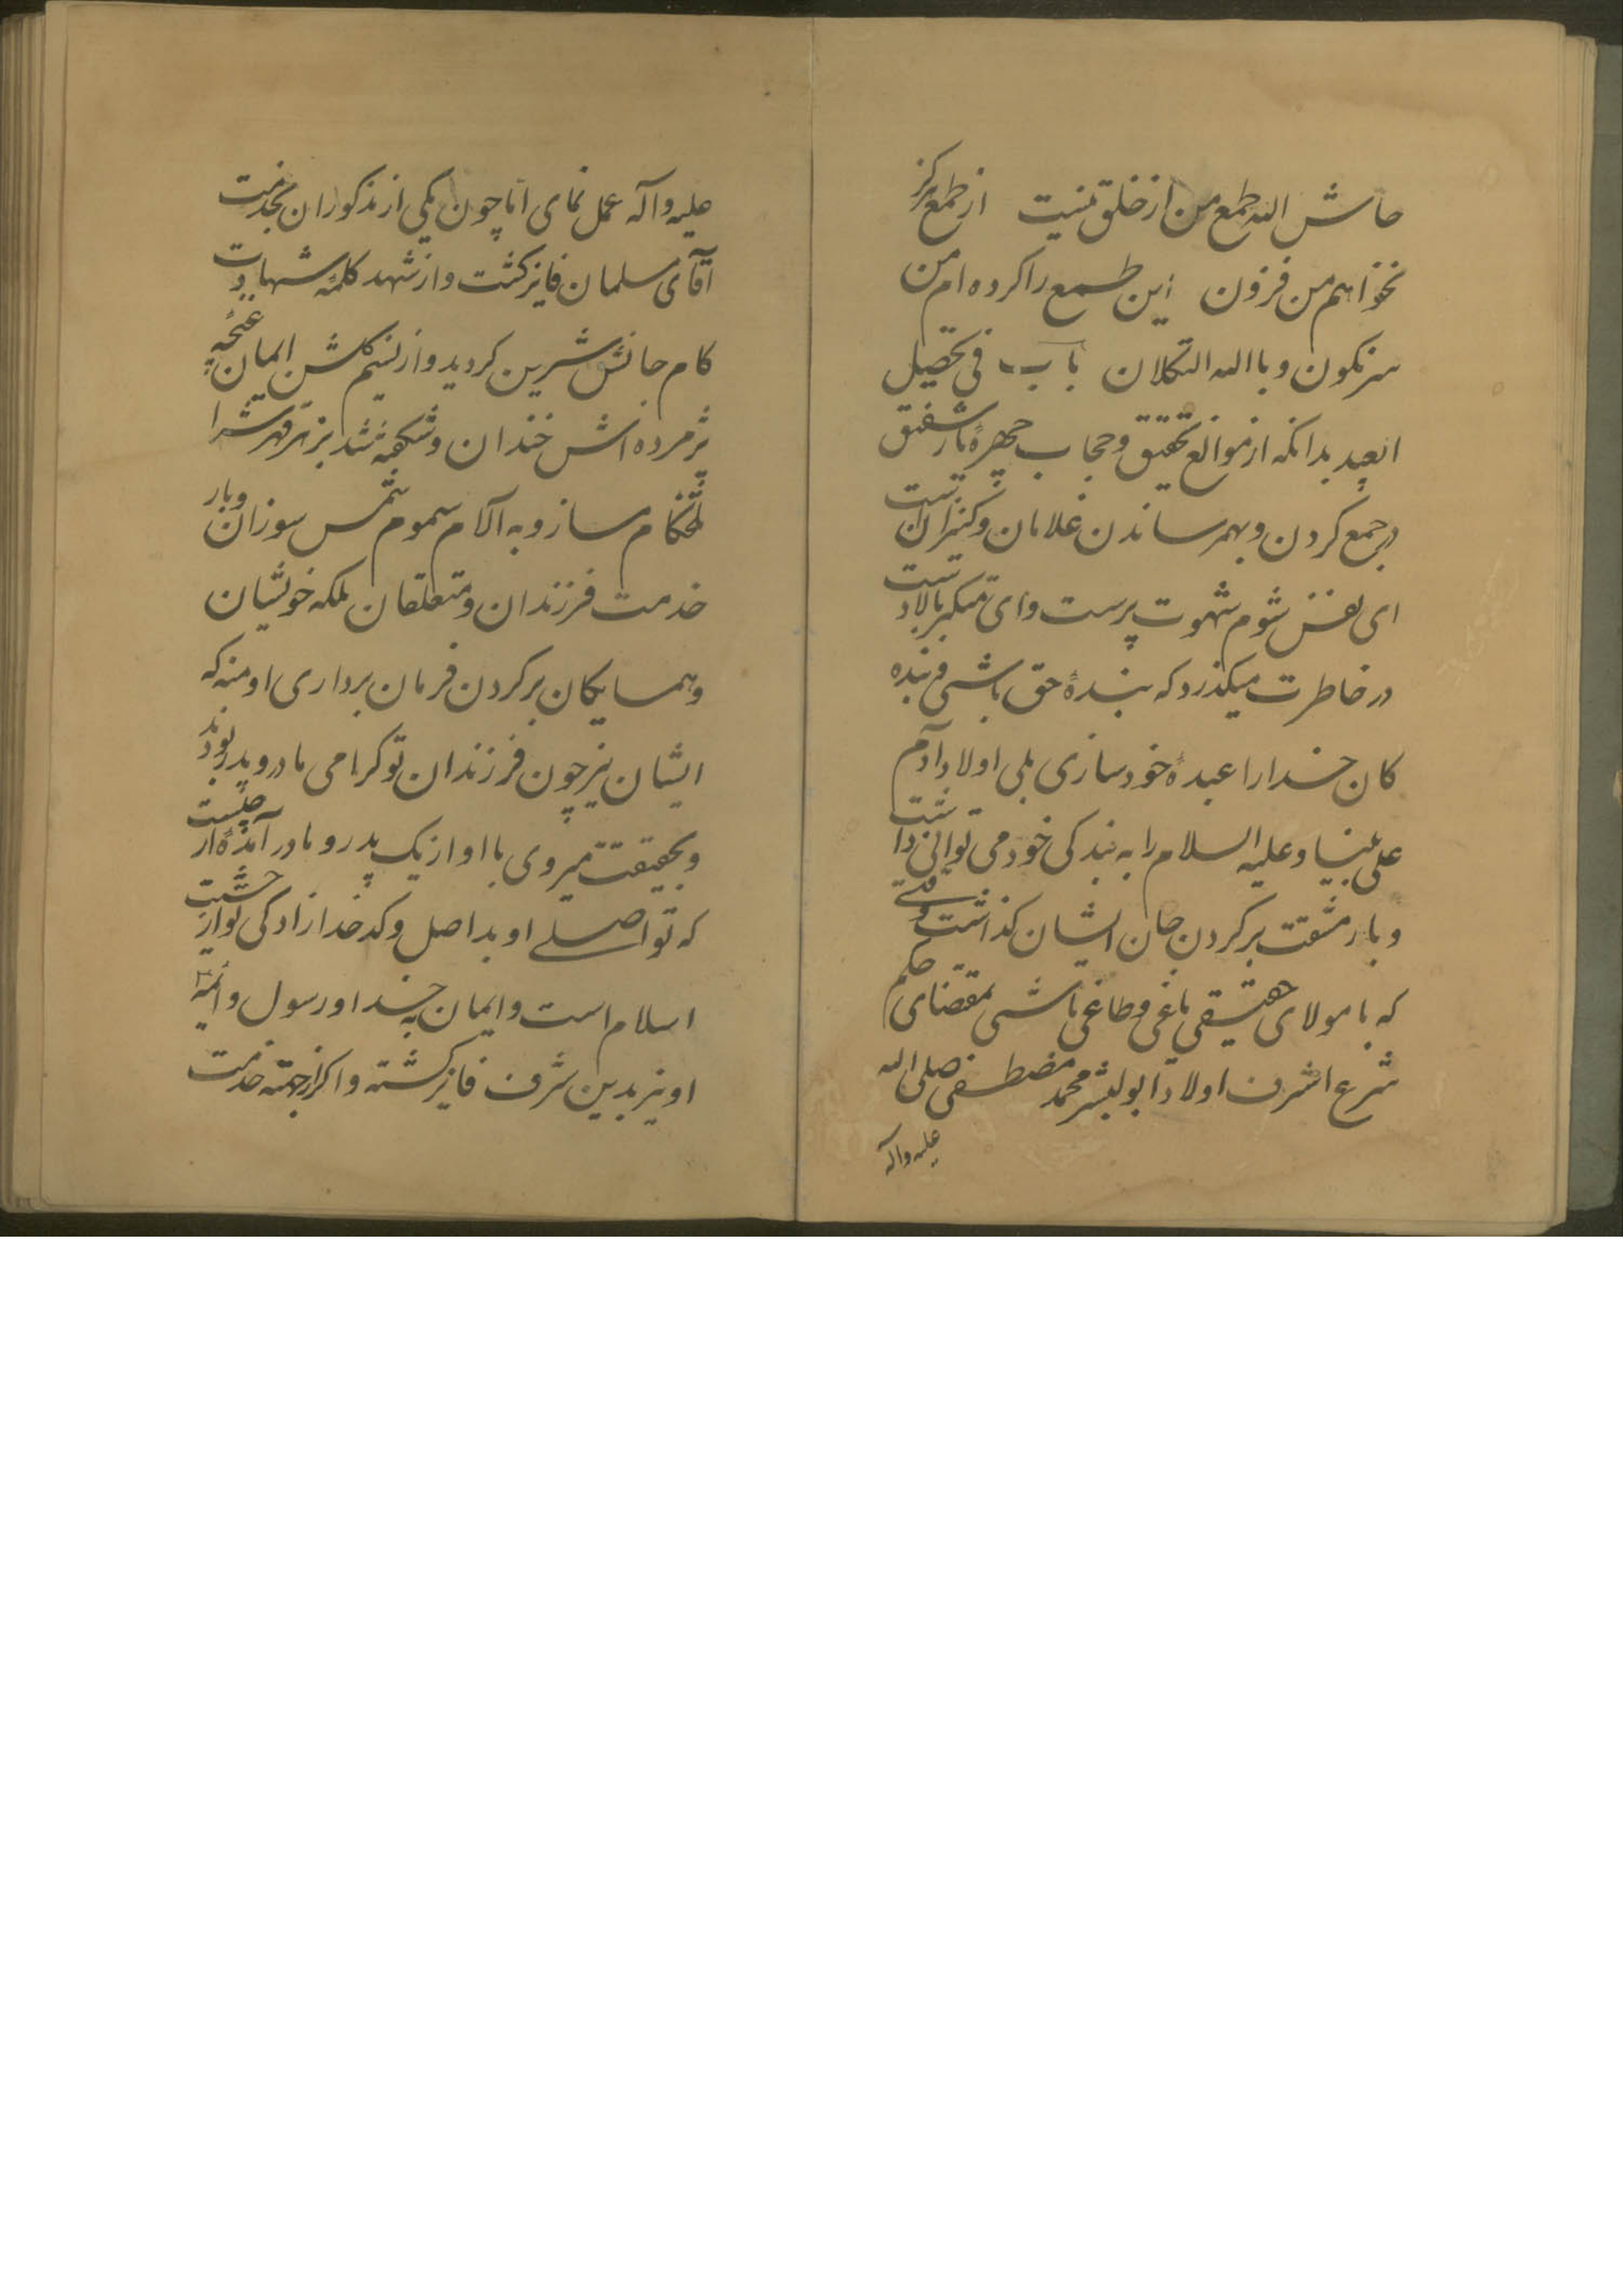 حاش الله طمع من از خلق نیست از طمع هرکز
نخواهم من فزون این طمع را کرده ام من
سرنکون و باالله التکلان باب فی تحصیل
العبید بدانکه از موانع تحقیق و حجاب چهرهٔ یار شفیق
در جمع کردن و بهمرساندن غلامان و کنیزان است
ای نفس شوم شهوت پرست وای متکبر بالادست
در خاطرت میکذرد که بندهٔ حق باشی و بنده
کان خدا را عبدهٔ خود سازی بلی اولاد آدم
علی نبینا و علیه السلام را به بندکی خود می توانی داشت
و بار مشقت بر کردن جان ایشان کذاشت وقتی
که با مولای حقیقی باغی و طاغی باشی بمقتضای حکم
شرع اشرف اولاد ابو البشر محمد مصطفی صلی الله
علیه واله
علیه و آله عمل نمای اما چون یکی از مذکوران بخدمت
آقای سلمان فایز کشت و از شهد کلمهٔ شهادت
کام جانش شیرین کردید و از نسیم کلشن ایمان غنچه
پژمرده اش خندان و شکفته شد بزهر قهرش را
تلخکام مساز و به آلام سموم شمس سوزان و بار
خدمت فرزندان و متعلقان بلکه خویشان
و همسایکان بر کردن فرمان برداری او منه که
ایشان نیز چون فرزندان تو کرامی مادر و پدر بودند
و بحقیقت میروی با او از یک پدر و مادر آمدهٔ از چیست
که تو اصلی او بد اصل و کدخدازادکی تو از حشمت
اسلام است و ایمان به خدا و رسول و ائمه
او نیز بدین شرف فایز کشته و اکر از جهته خدمت